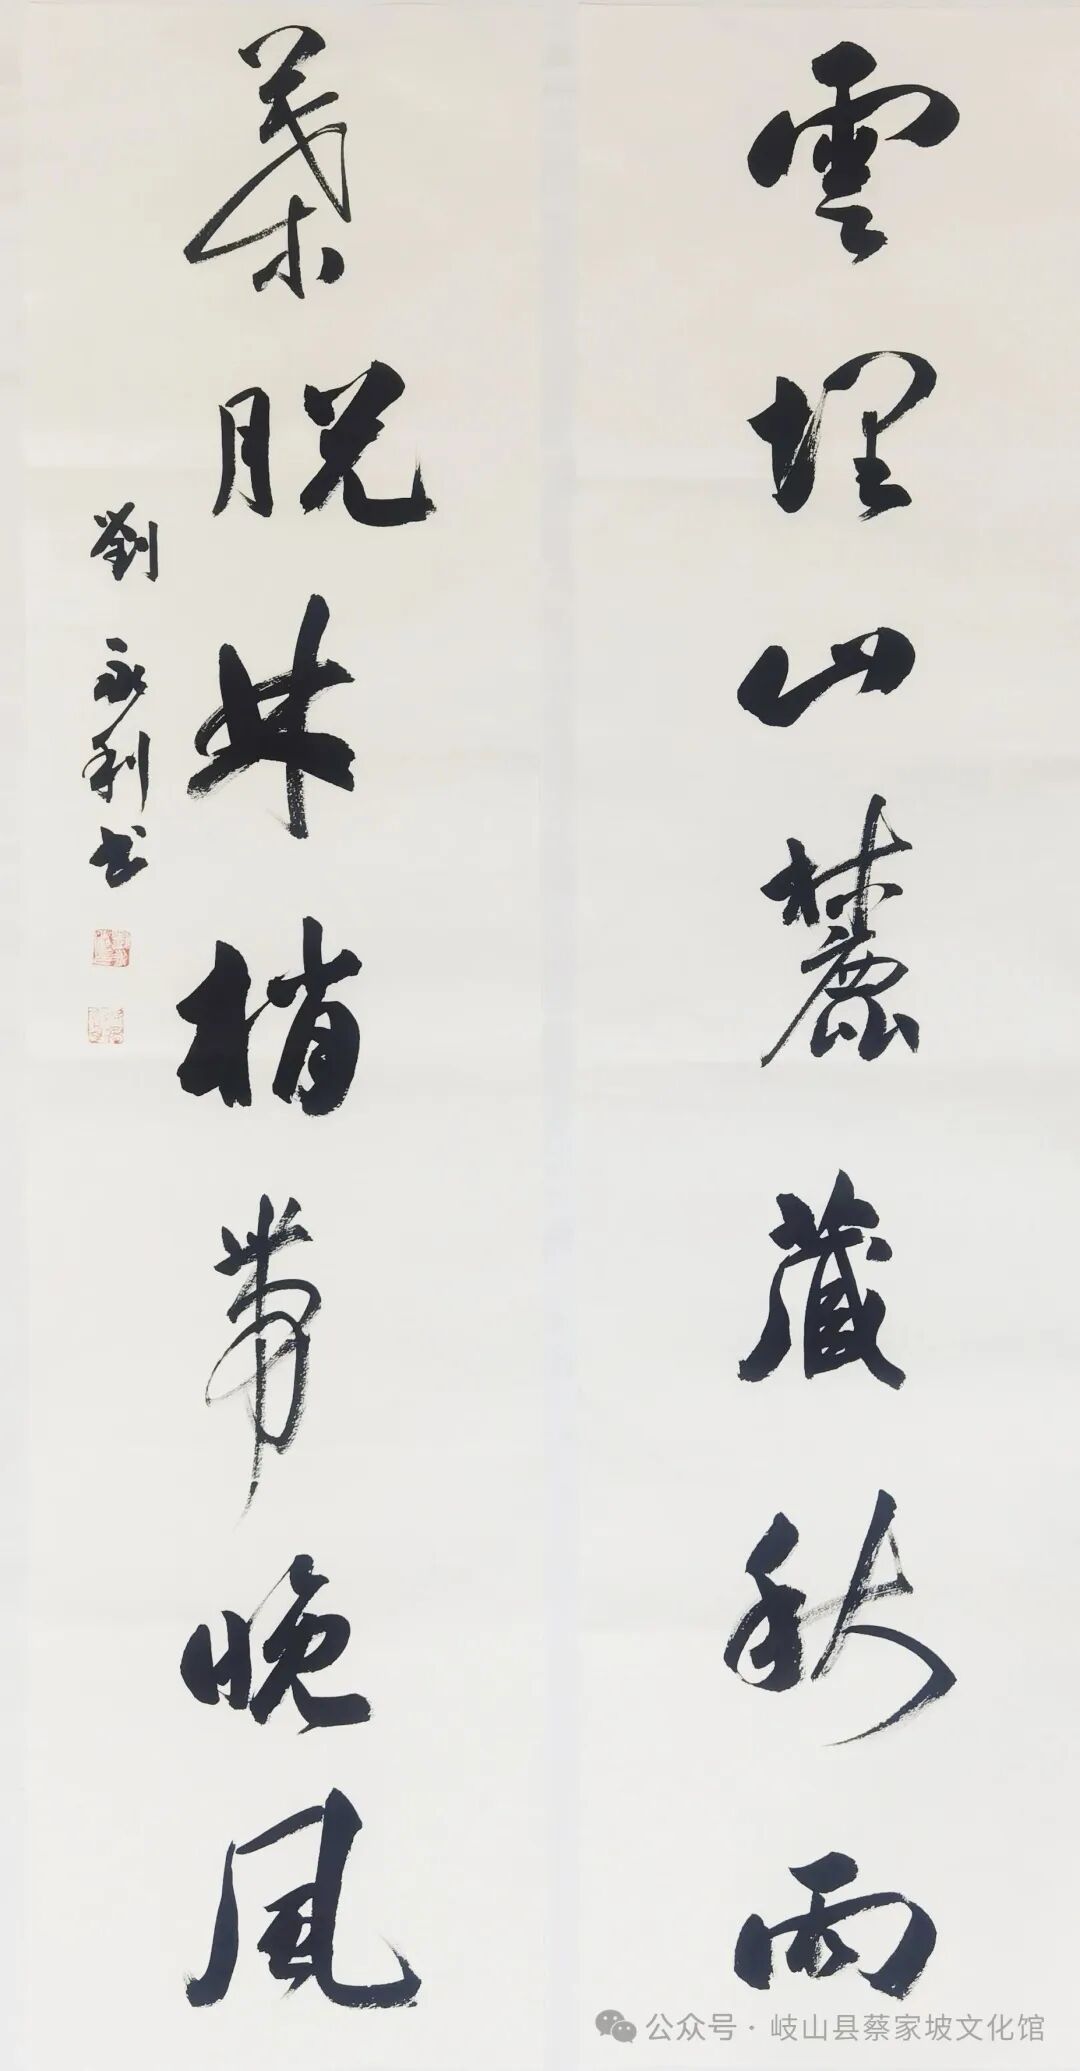 雲埋山麓藏秋雨
葉脱林梢帶晚風
劉永利书
公众号·岐山县蔡家坡文化馆